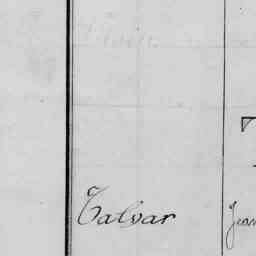 Talvar Jean